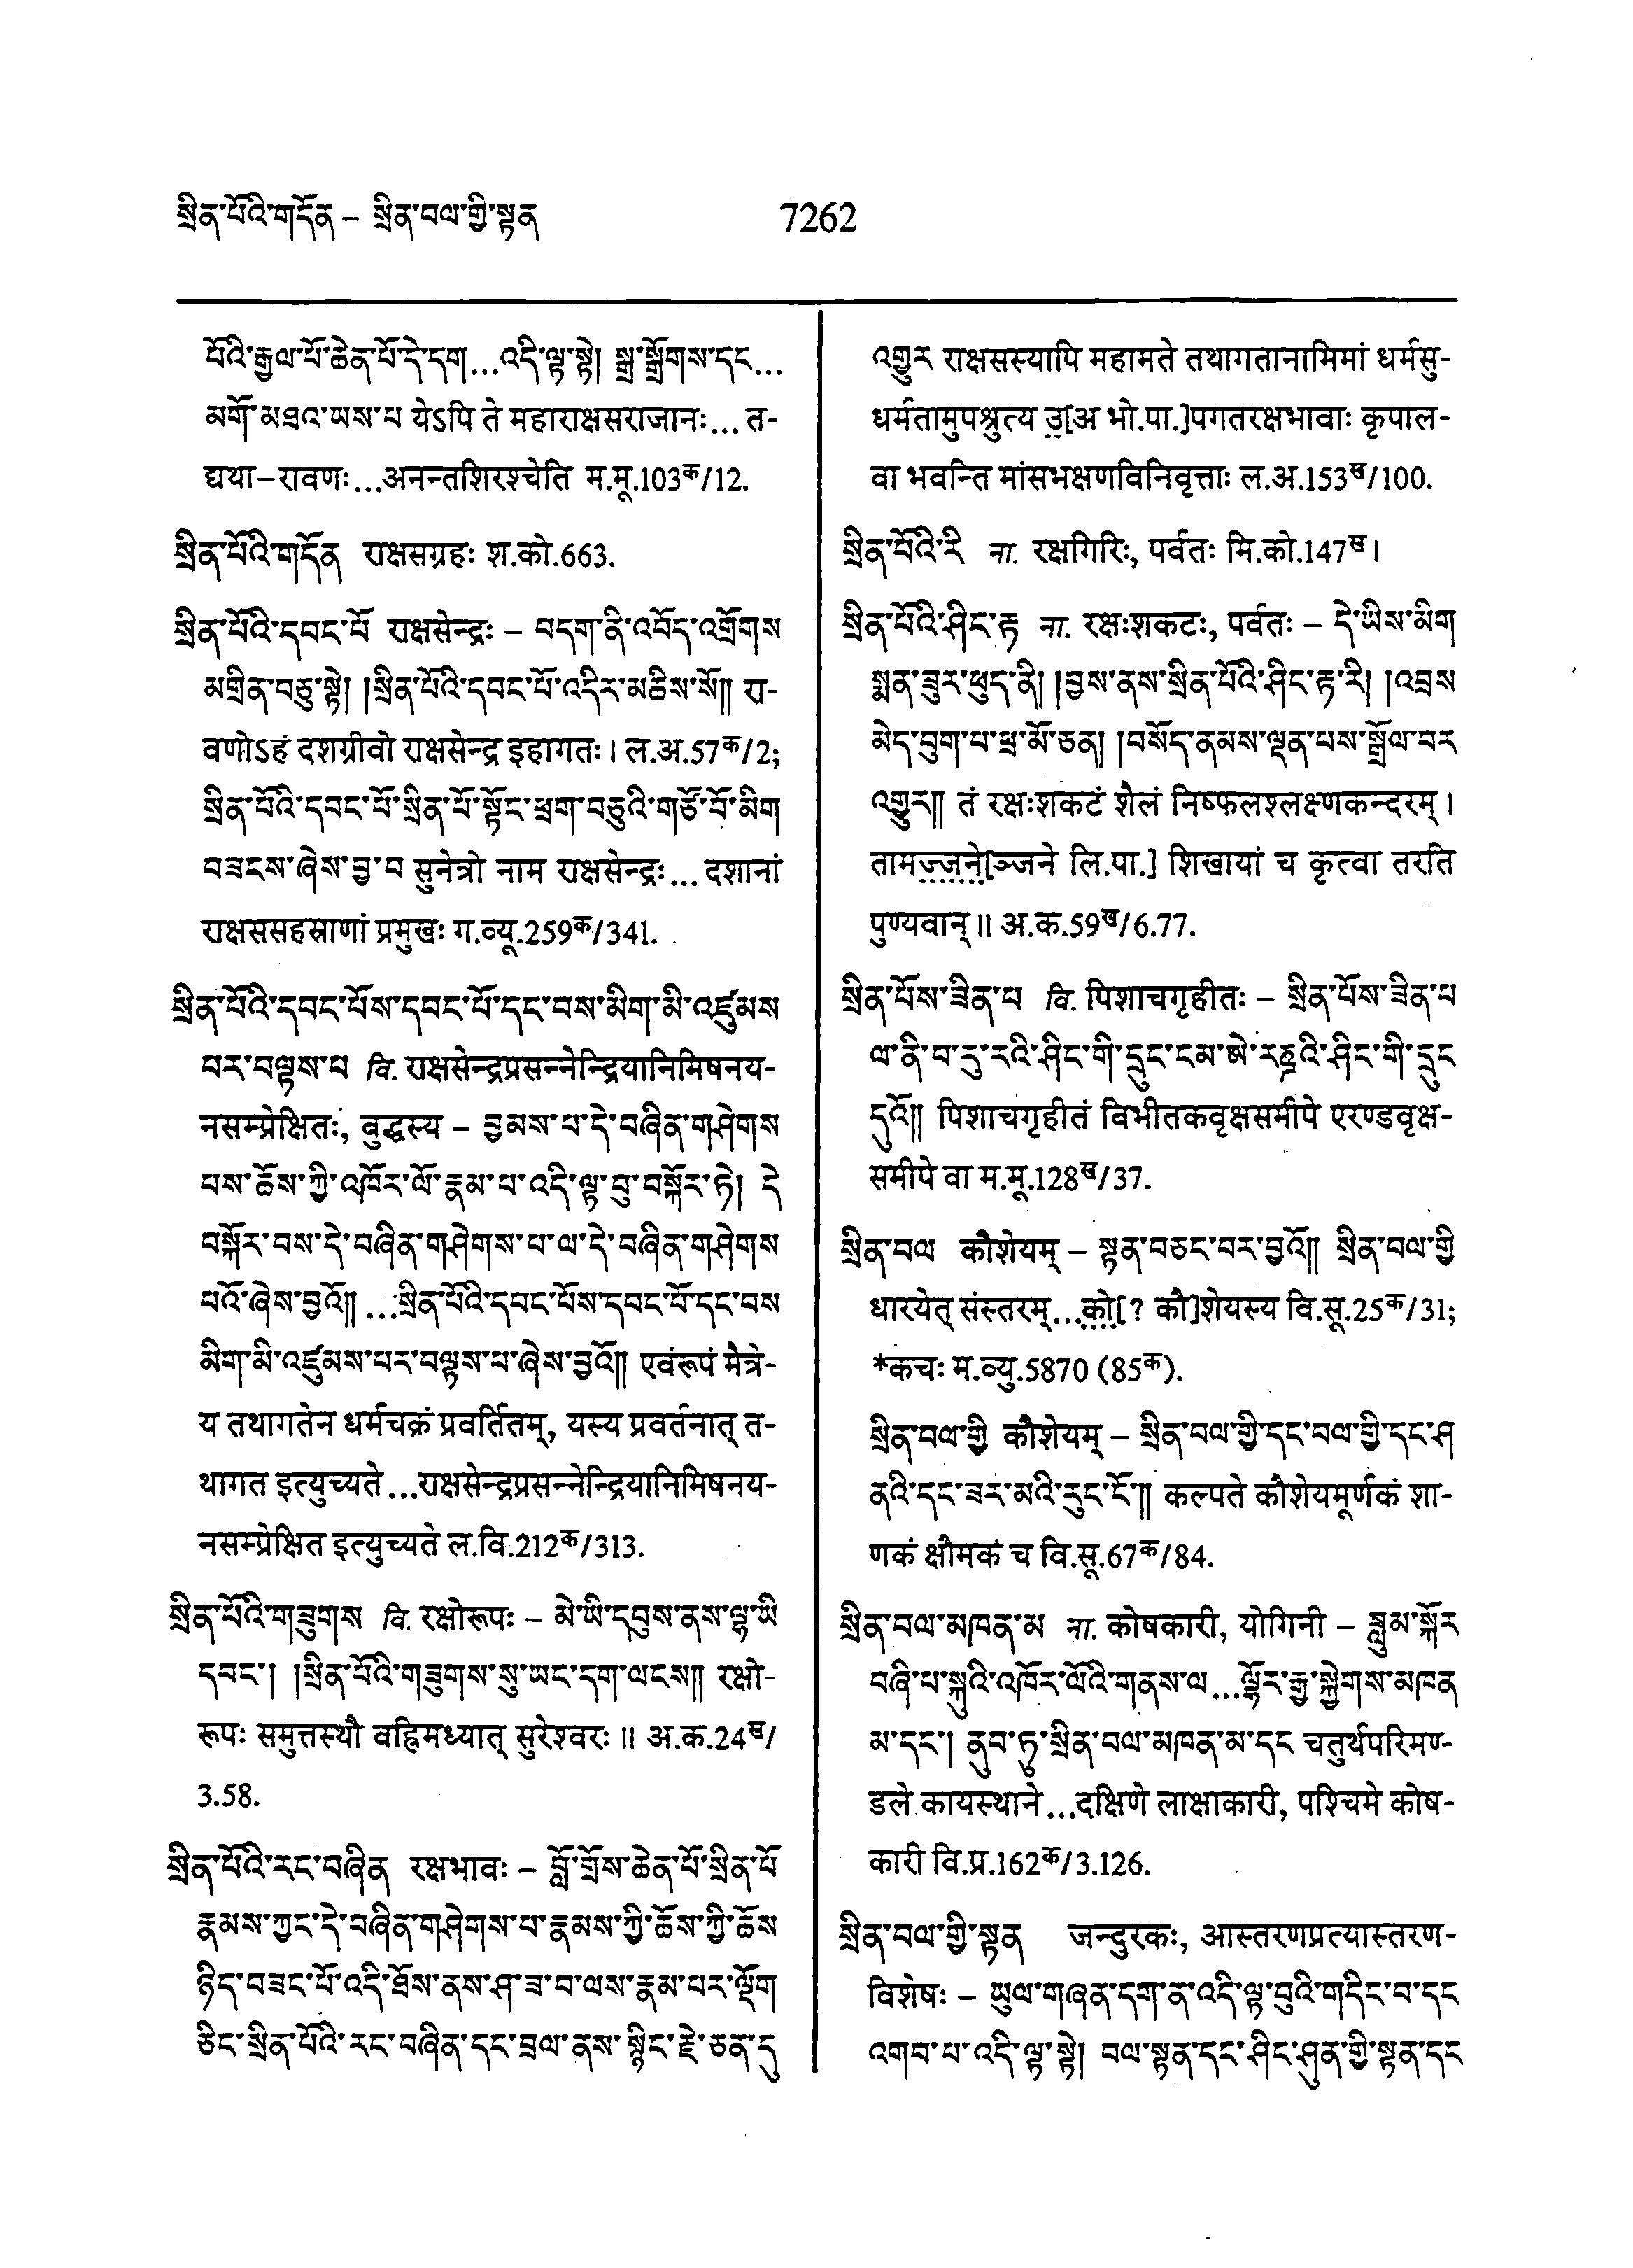 སྲིན་པོའི་གདོན – སྲིན་བལ་གྱི་སྟན
7262
པོའི་རྒྱལ་པོ་ཆེན་པོ་དེ་དག...འདི་ལྟ་སྟེ། སྒྲ་སྒྲོགས་དང...
མགོ་མཐའ་ཡས་པ येऽपि ते महाराक्षसराजानः... त-
द्यथा–रावणः...अनन्तशिरश्चेति म.मू.103क/12.
སྲིན་པོའི་གདོན राक्षसग्रहः श.को.663.
སྲིན་པོའི་དབང་པོ राक्षसेन्द्रः – བདག་ནི་འབོད་འགྲོགས
མགྲིན་བཅུ་སྟེ། །སྲིན་པོའི་དབང་པོ་འདིར་མཆིས་སོ།། रा-
वणोऽहं दशग्रीवो राक्षसेन्द्र इहागतः। ल.अ.57क/2;
སྲིན་པོའི་དབང་པོ་སྲིན་པོ་སྟོང་ཕྲག་བཅུའི་གཙོ་བོ་མིག
བཟངས་ཞེས་བྱ་བ सुनेत्रो नाम राक्षसेन्द्रः... दशानां
राक्षससहस्राणां प्रमुखः ग.व्यू.259क/341.
སྲིན་པོའི་དབང་པོས་དབང་པོ་དང་བས་མིག་མི་འཛུམས
བར་བལྟས་པ वि. राक्षसेन्द्रप्रसन्नेन्द्रियानिमिषनय-
नसम्प्रेक्षितः, बुद्धस्य – བྱམས་པ་དེ་བཞིན་གཤེགས
པས་ཆོས་ཀྱི་འཁོར་ལོ་རྣམ་པ་འདི་ལྟ་བུ་བསྐོར་ཏེ། དེ
བསྐོར་བས་དེ་བཞིན་གཤེགས་པ་ལ་དེ་བཞིན་གཤེགས
པའོ་ཞེས་བྱའོ།། ...སྲིན་པོའི་དབང་པོས་དབང་པོ་དང་བས
མིག་མི་འཛུམས་པར་བལྟས་པ་ཞེས་བྱའོ།། एवंरूपं मैत्रे-
य तथागतेन धर्मचक्रं प्रवर्तितम्, यस्य प्रवर्तनात् त-
थागत इत्युच्यते...राक्षसेन्द्रप्रसन्नेन्द्रियानिमिषनय-
नसम्प्रेक्षित इत्युच्यते ल.वि.212क/313.
སྲིན་པོའི་གཟུགས वि. रक्षोरूपः – མེ་ཡི་དབུས་ནས་ལྷ་ཡི
དབང་། །སྲིན་པོའི་གཟུགས་སུ་ཡང་དག་ལངས།། रक्षो-
रूपः समुत्तस्थौ वह्निमध्यात् सुरेश्वरः॥ अ.क.24ख/
3.58.
སྲིན་པོའི་རང་བཞིན रक्षभावः – བློ་གྲོས་ཆེན་པོ་སྲིན་པོ
རྣམས་ཀྱང་དེ་བཞིན་གཤེགས་པ་རྣམས་ཀྱི་ཆོས་ཀྱི་ཆོས
ཉིད་བཟང་པོ་འདི་ཐོས་ནས་ཤ་ཟ་བ་ལས་རྣམ་པར་ལྡོག
ཅིང་སྲིན་པོའི་རང་བཞིན་དང་བྲལ་ནས་སྙིང་རྗེ་ཅན་དུ
འགྱུར राक्षसस्यापि महामते तथागतानामिमां धर्मसु-
धर्मतामुपश्रुत्य उ[अ भो.पा.]पगतरक्षभावाः कृपाल-
वा भवन्ति मांसभक्षणविनिवृत्ताः ल.अ.153ख/100.
སྲིན་པོའི་རི ना. रक्षगिरिः, पर्वतः मि.को.147ख।
སྲིན་པོའི་ཤིང་རྟ ना. रक्षःशकटः, पर्वतः – དེ་ཡིས་མིག
སྨན་ཟུར་ཕུད་ནི། །བྱས་ནས་སྲིན་པོའི་ཤིང་རྟ་རི། །འབྲས
མེད་བུག་པ་ཕྲ་མོ་ཅན། །བསོད་ནམས་ལྡན་པས་སྒྲོལ་བར
འགྱུར།། तं रक्षःशकटं शैलं निष्फलश्लक्ष्णकन्दरम्।
तामज्जने[ञ्जने लि.पा.] शिखायां च कृत्वा तरति
पुण्यवान्॥ अ.क.59ख/6.77.
སྲིན་པོས་ཟིན་པ वि. पिशाचगृहीतः – སྲིན་པོས་ཟིན་པ
ལ་ནི་བ་དུ་རའི་ཤིང་གི་དྲུང་ངམ་ཨེ་རཎྜའི་ཤིང་གི་དྲུང
དུའོ།། पिशाचगृहीतं विभीतकवृक्षसमीपे एरण्डवृक्ष-
समीपे वा म.मू.128ख/37.
སྲིན་བལ कौशेयम् – སྟན་བཅང་བར་བྱའོ།། སྲིན་བལ་གྱི
धारयेत् संस्तरम्...को[? कौ]शेयस्य वि.सू.25क/31;
*कचः म.व्यु.5870 (85क).
སྲིན་བལ་གྱི कौशेयम् – སྲིན་བལ་གྱི་དང་བལ་གྱི་དང་ཤ
ནའི་དང་ཟར་མའི་རུང་ངོ་།། कल्पते कौशेयमूर्णकं शा-
णकं क्षौमकं च वि.सू.67क/84.
སྲིན་བལ་མཁན་མ ना. कोषकारी, योगिनी – ཟླུམ་སྐོར
བཞི་པ་སྐུའི་འཁོར་ལོའི་གནས་ལ...ལྷོར་རྒྱ་སྐྱེགས་མཁན
མ་དང་། ནུབ་ཏུ་སྲིན་བལ་མཁན་མ་དང चतुर्थपरिमण्-
डले कायस्थाने...दक्षिणे लाक्षाकारी, पश्चिमे कोष-
कारी वि.प्र.162क/3.126.
སྲིན་བལ་གྱི་སྟན जन्दुरकः, आस्तरणप्रत्यास्तरण-
विशेषः – ཡུལ་གཞན་དག་ན་འདི་ལྟ་བུའི་གདིང་བ་དང
འགབ་པ་འདི་ལྟ་སྟེ། བལ་སྟན་དང་ཤིང་ཤུན་གྱི་སྟན་དང